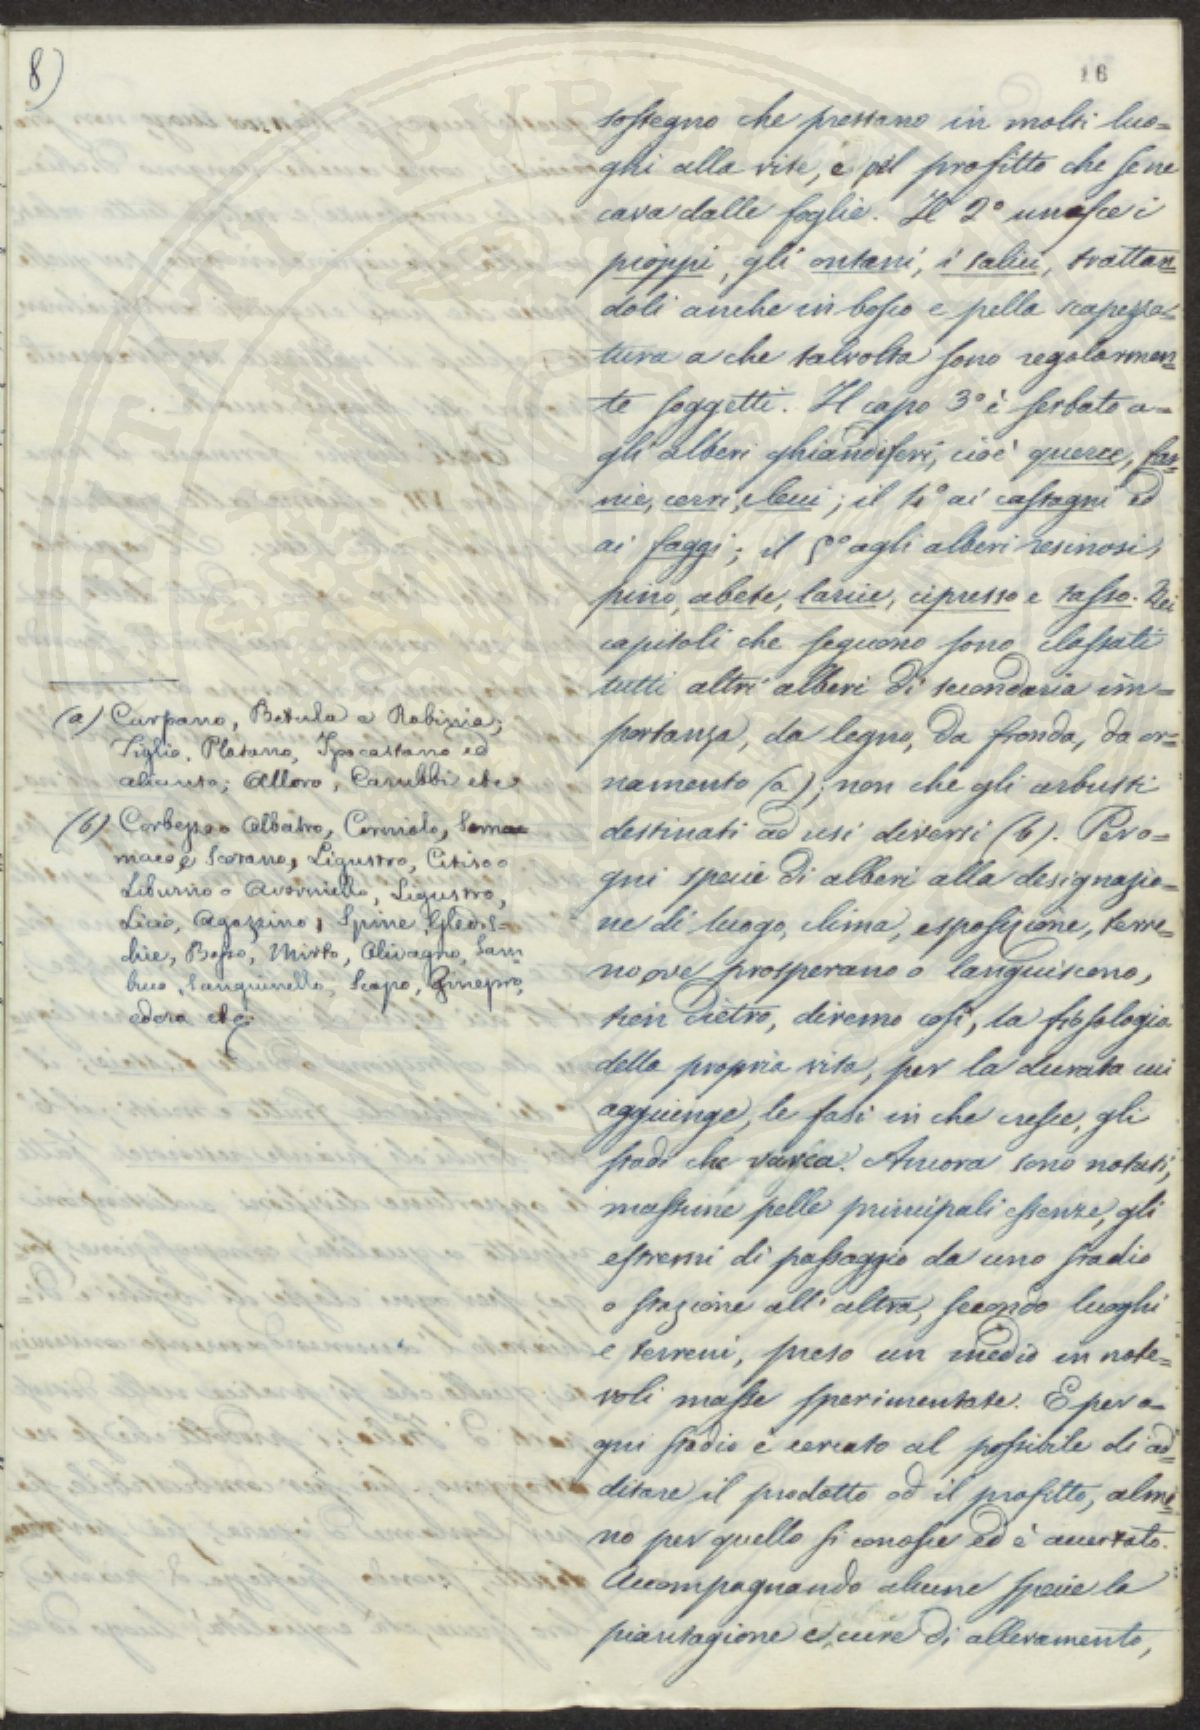 8)
16
sostegno che prestano in molti luo=
ghi alla vite, e pel profitto che se ne
cava dalle foglie. Il 2° unisce i
pioppi, gli ontani, i salici, trattan=
doli anche in bosco e pella scapezza=
tura a che talvolta sono regolarmen=
te soggetti. Il capo 3° è serbato a=
gli alberi ghiandiferi, cioè querce, far=
nie, cerri, elcui; il 4° ai castagni ed
ai faggi; il 5° agli alberi resinosi,
pino, abete, larice, cipresso e tasso. Nei
capitoli che seguono sono classati
tutti altri alberi di secondaria im=
portanza, da legno, da fronda, da or=
namento (a); non che gli arbusti
destinati ad usi diversi (b). Per o=
gni specie di alberi alla designazio=
ne di luogo, clima, esposizione, terre=
no ove prosperano o languiscono,
tien dietro, diremo così, la fisologia
della propria vita, per la durata cui
aggiunge, le fasi in che cresce, gli
stadi che varca. Ancora sono notati,
massime pelle principali essenze, gli
estremi di passaggio da uno stadio
o stazione all'altra, secondo luoghi
e terreni, preso un medio in note=
voli masse sperimentate. E per o=
gni stadio è cercato al possibile di ad=
ditare il prodotto od il profitto, alme=
no per quello si conosce ed è accertato.
Accompagnando alcune specie la
piantagione e cure di allevamento,
(a) Carpano, Betula e Robinia;
Tiglio, Platano, Ipocastano ed
; Alloro, Carubbi etc
(b) Corbezzo o Albatro, Corniolo, Soma=
maco, e Scotano, Ligustro, Citiso o
Liburno o Avorniello, Ligustro,
Licio, Agazzino, Spine, Gledit=
chie, Bosso, Mirto, Olivagno, Sam=
buco, Sanguinello, Scopo, Ginepro,
edera etc